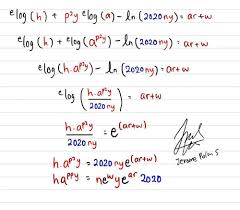 elog(h) + p²y elog(a) - ln(2020ny) = ar+w
elog(h) + elog(a^p²y) - ln(2020ny) = ar+w
elog(h.a^p²y) - ln(2020ny) = ar+w
elog(h.a^p²y / 2020ny) = ar+w
h.a^p²y / 2020ny = e^(ar+w)
h.a^p²y = 2020nye^(ar+w)
ha^ppy = ne^wye^ar 2020